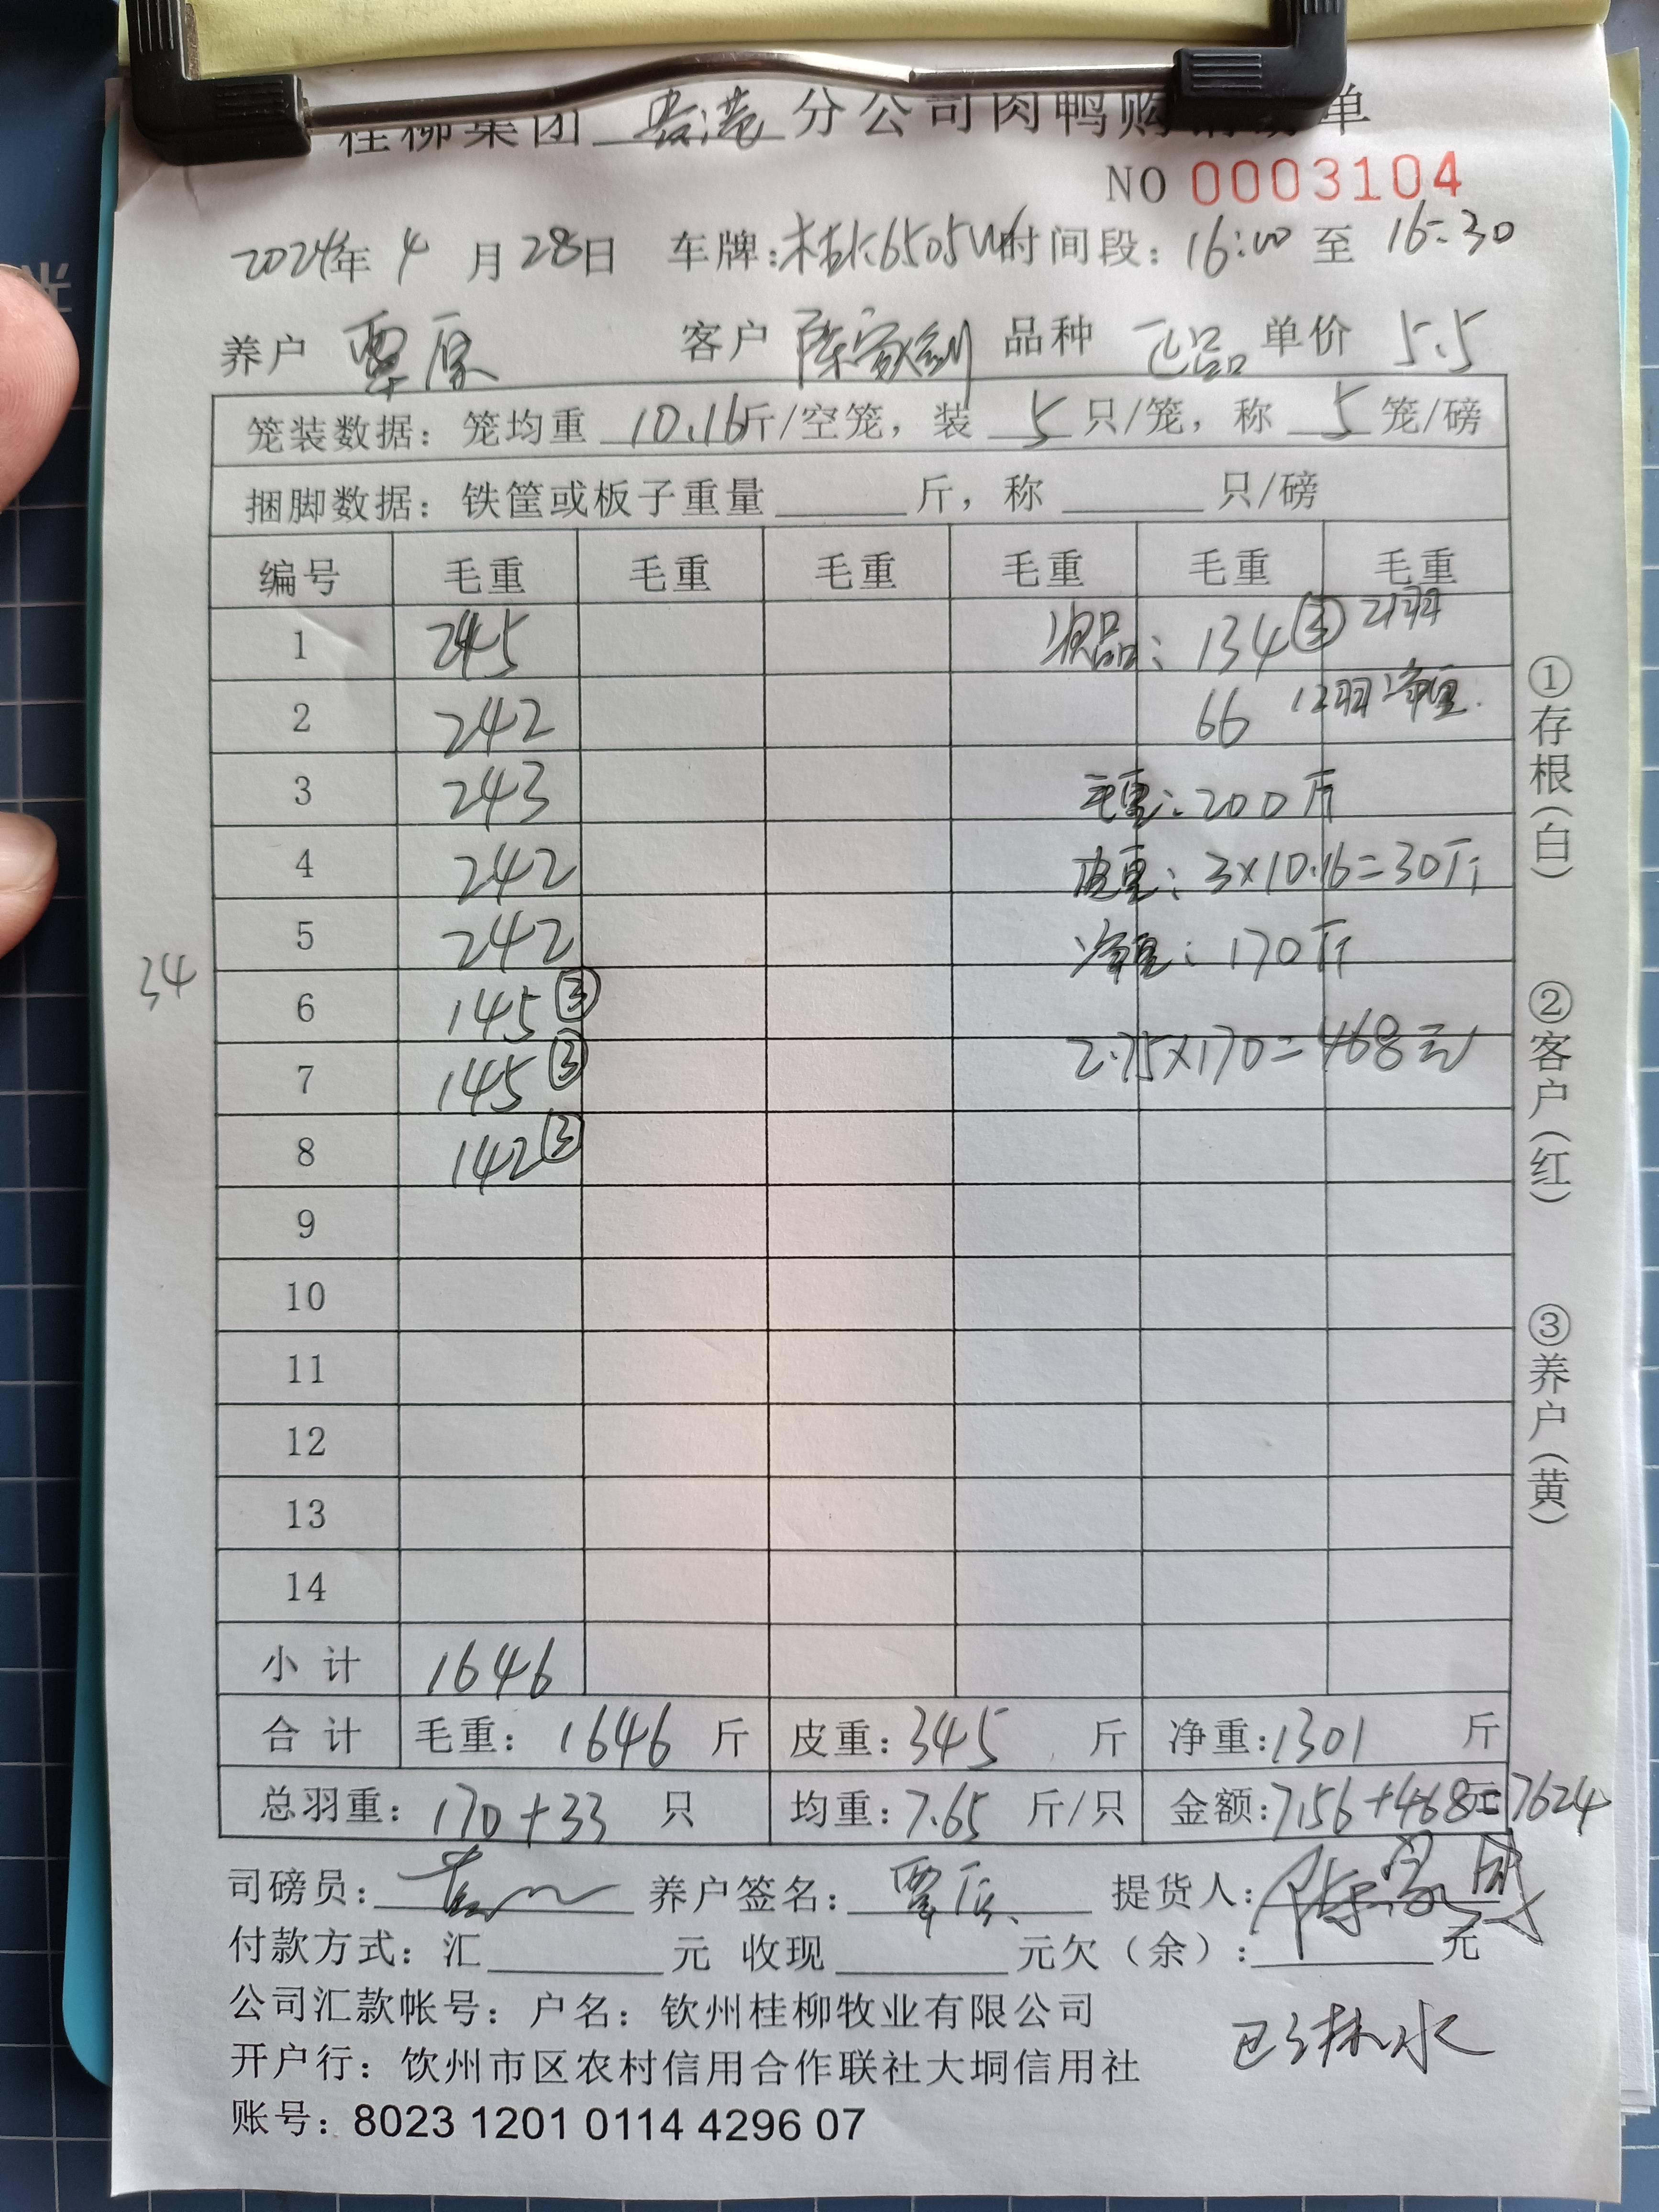 桂柳集团 贵港 分公司肉鸭购销 单
NO 0003104
2024年 4 月 28日 车牌:桂K6505 时间段: 16:00 至 16:30
养户 覃原 客户 陈家 品种 正品 单价 5.5
笼装数据: 笼均重 10.16斤/空笼, 装 5 只/笼, 称 5 笼/磅
捆脚数据: 铁筐或板子重量 斤, 称 只/磅
编号 毛重 毛重 毛重 毛重 毛重 毛重
1 245 次品: 134③ 21羽
2 242 66 12羽 净重.
3 243 毛重: 200斤
4 242 皮重: 3×10.16=30斤
5 242 净重: 170斤
34
6 145③
7 145③ 2.75×170=468元
8 142③
9
10
11
12
13
14
小计 1646
合计 毛重: 1646 斤 皮重: 345 斤 净重: 1301 斤
总羽重: 170+33 只 均重: 7.65 斤/只 金额: 7156+468元=7624
司磅员: 养户签名: 覃原 提货人: 陈家
付款方式: 汇 元 收现 元欠(余): 元
公司汇款帐号: 户名: 钦州桂柳牧业有限公司
开户行: 饮州市区农村信用合作联社大垌信用社
账号: 8023 1201 0114 4296 07
①存根(白)
②客户(红)
③养户(黄)